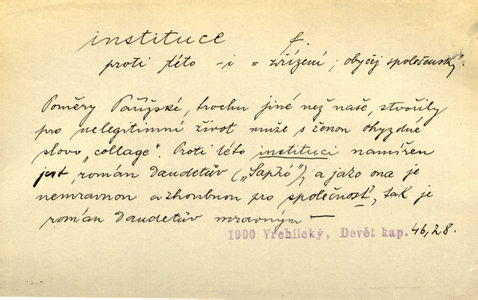 instituce f.
proti této -i = zřízení; obyčej společenský
Poměry Pařížské, trochu jiné než naše, stvořily
pro nelegitimní život muže s ženou ohyzdné
slovo „collage". Proti této instituci namířen
jest román Daudetův („Sapho"), a jako ona je
nemravnou a zhoubnou pro společnost, tak je
román Daudetův mravným —
1900 Vrchlický, Devět kap. 46,28.